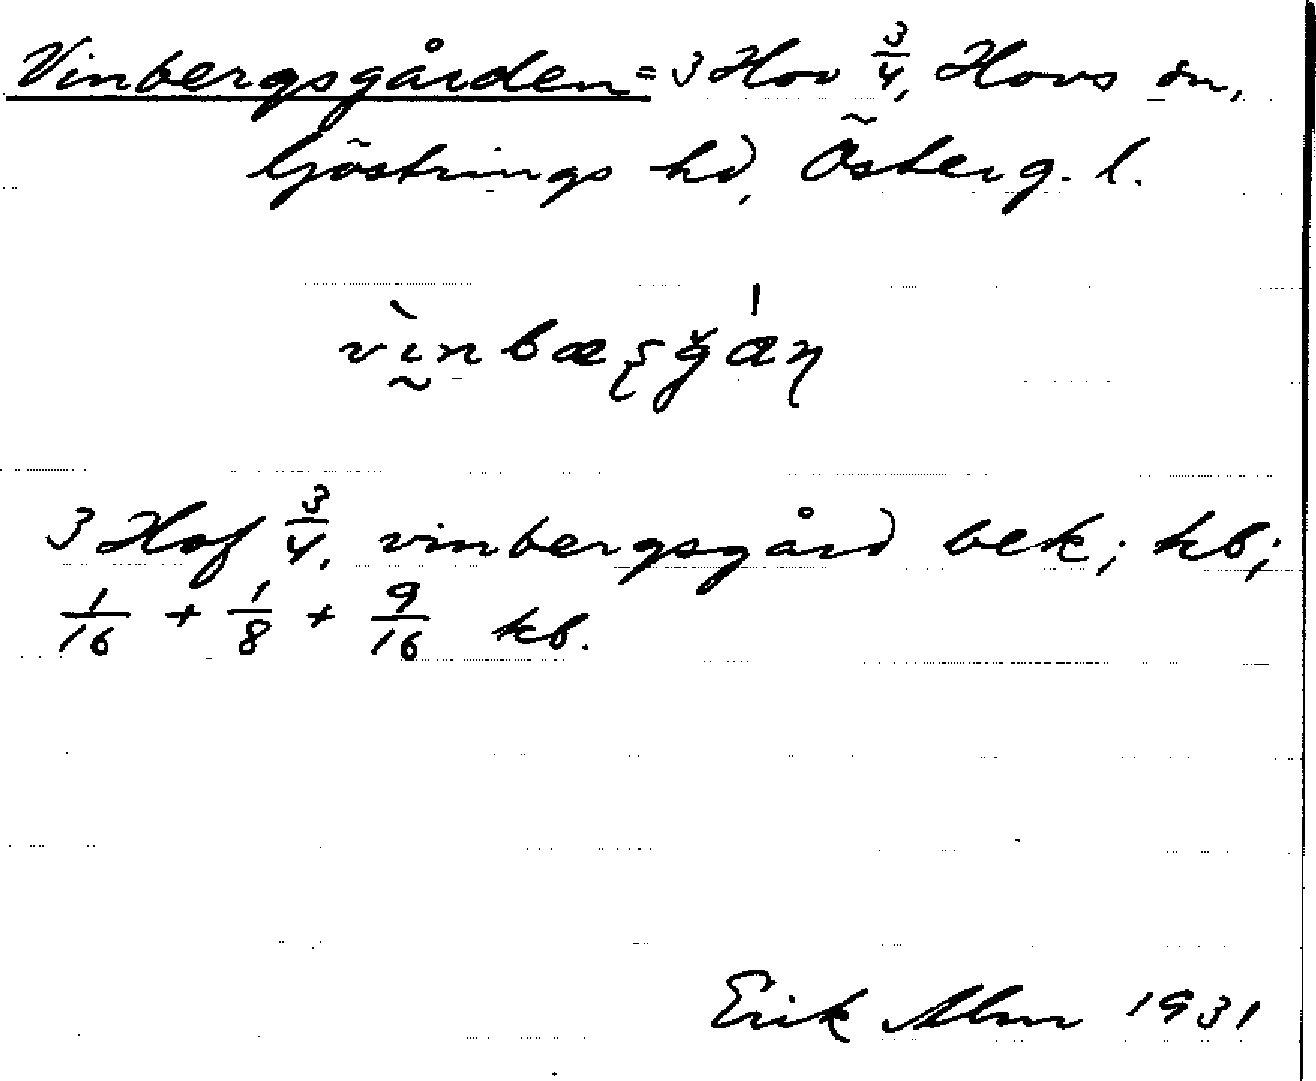 Vinbergsgården = 3 Hov 3/4, Hovs sn,
Göstrings hd, Österg. l.
3 Hof 3/4, vinbergsgård bek; kb;
1/16 + 1/8 + 9/16 kb.
Erik Alm 1931